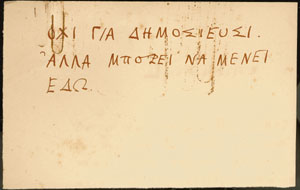 ΟΧΙ ΓΙΑ ΔΗΜΟΣΙΕΥΣΙ.
ΑΛΛΑ ΜΠΟΡΕΙ ΝΑ ΜΕΝΕΙ
ΕΔΩ.